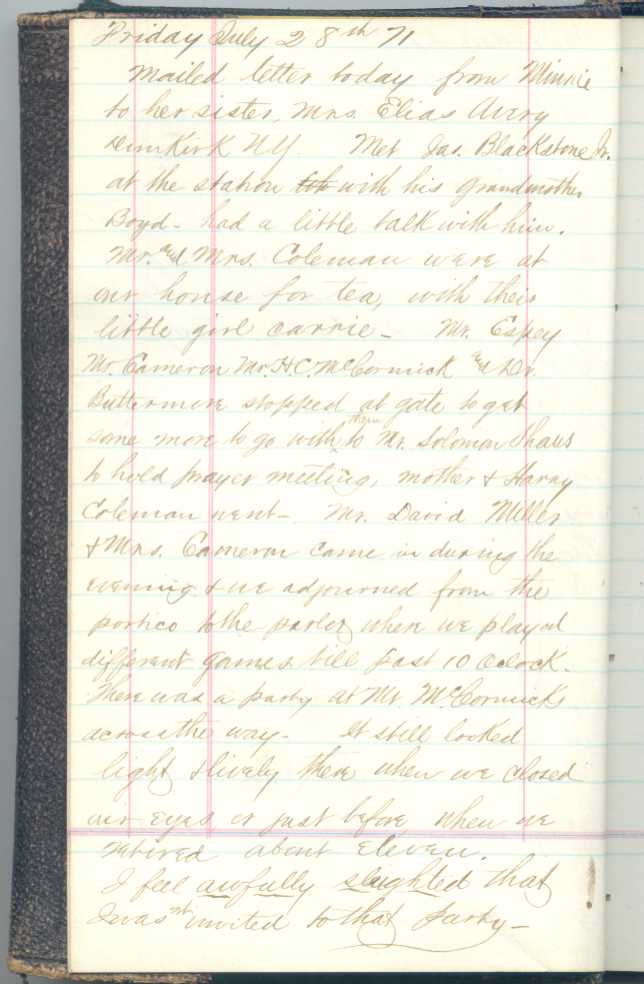 Friday July 28th 71
Mailed letter today from Minnie
to her sister, Mrs. Elias Avery
Dunkirk NY Met Jas. Blackstone Jr.
at the station with his grandmother
Boyd - had a little talk with him.
Mr. and Mrs. Coleman were at
our house for tea, with their
little girl Carrie - Mr. Espey
Mr. Cameron Mr. H. C. McCormick and Dr.
Buttermore stopped at gate to get
some more to go with them to Mr. Solomon Shaus
to hold prayer meeting, mother & Harry
Coleman went - Mr. David Miller
& Mrs. Cameron came in during the
evening & we adjourned from the
portico to the parlor where we played
different games till past 10 oclock.
There was a party at Mr. McCormicks
across the way - It still looked
light & lively there when we closed
our eyes or just before, when we
retired about eleven.
I feel awfully slighted that
I was not invited to that party -